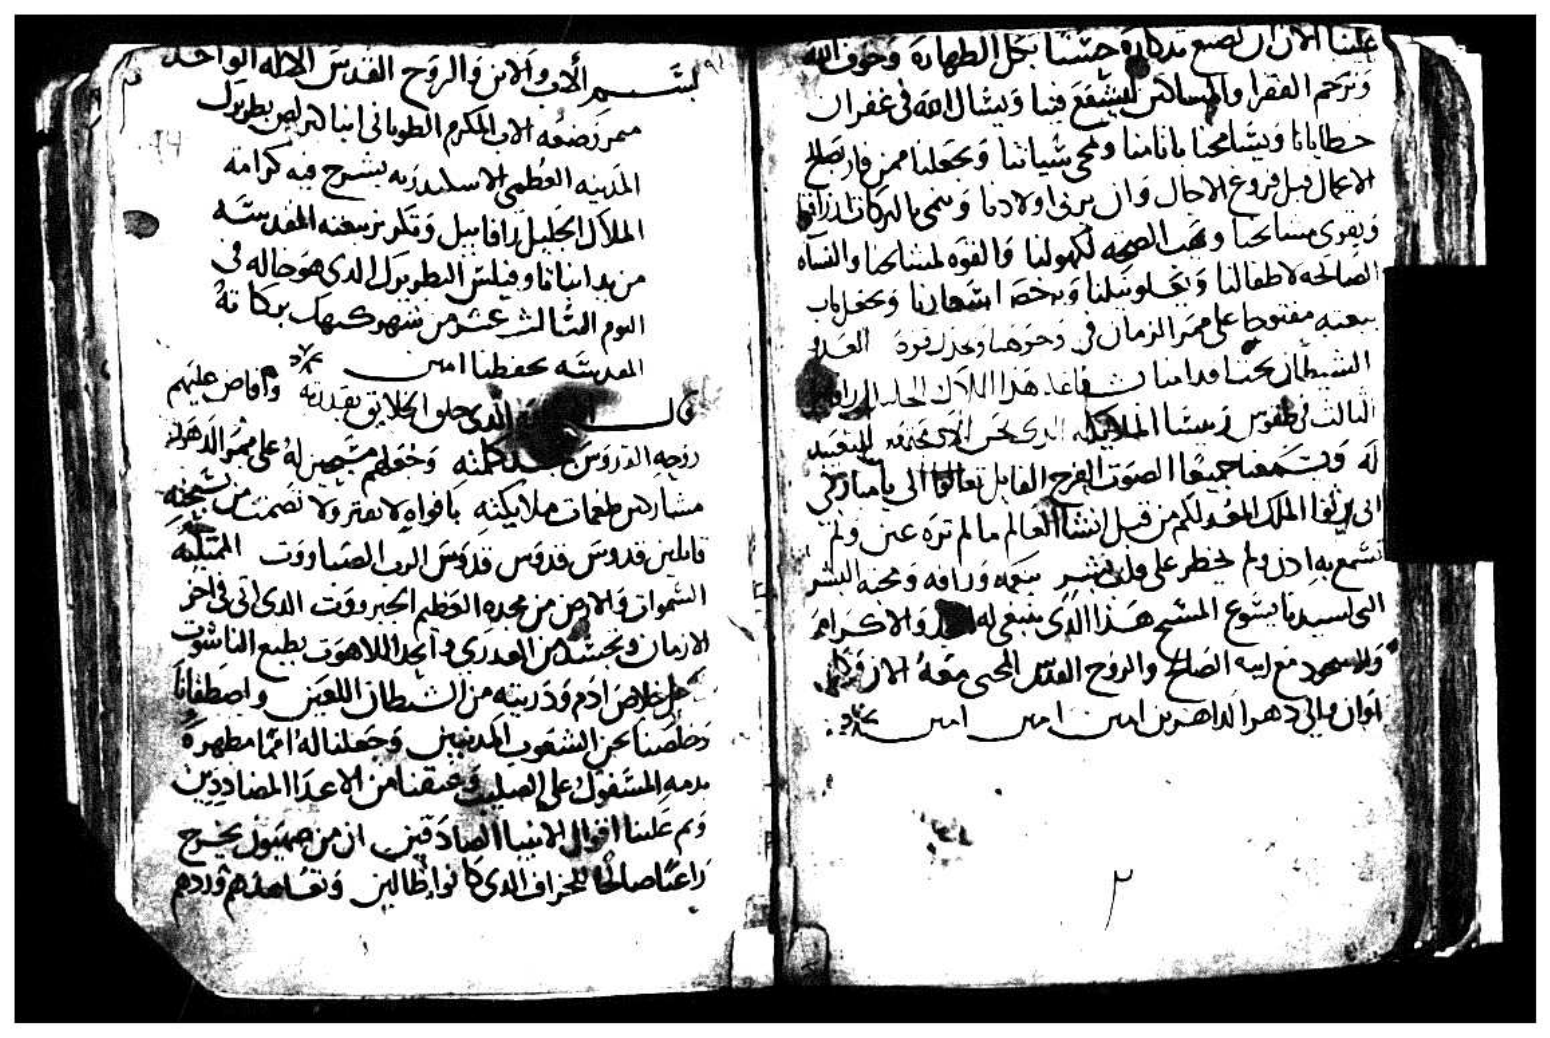 علينا الان ان نصنع تدكاره حسنا بكل الطهاره وخوف الله
ونرحم الفقرا والمساكين ليشفع فينا ويسال الله في غفران
خطايانا ويسامحنا باثامنا ويمحى سياتنا ويجعلنا ممن فاز بصالح
الاعمال قبل فروغ الاجال وان يربى اولادنا وينمى بالبركات ارزاقنا
ويقوى مشايخنا ويهب الصحه لكهولنا والقوه لمشايخنا والنشاه
الصالحه لاطفالنا ويرخص اسعارنا ويجعل باب
بيعته مفتوحا على ممر الزمان في وجوهنا قوة العدو
الشيطان تحتنا قدامنا بشفاعة هذا الملاك الجليل رافاييل
الثالث في طقوس رييسا الملايكه الدى نحن الان مجتمعين لنعيد
له ويسمعنا جميعا الصوت الفرح القايل تعالوا الى يا مباركي
ابى رثوا الملك المعد لكم من قبل انشا العالم ما لم تره عين ولم
تسمع به ادن ولم يخطر على قلب بشر بنعمه ورافه ومحبه البشر
التى لسيدنا يسوع المسيح هذا الدى ينبغى له المجد والاكرام
والسجود مع ابيه الصالح والروح القدس المحيى معه الان وكل
اوان والى دهر الداهرين امين امين امين
٢
بسم الاب والابن والروح القدس الاله الواحد
ميمر وضعه الاب المكرم الطوبانى انبا كيرلص بطريرك
المدينه العظمى الاسكندريه يشرح فيه كرامة
الملاك الجليل رافاييل وتكريز بيعته المقدسه
من يد ابينا ثاوفيلس البطريرك الدى هو خاله في
اليوم الثالث عشر من شهر كيهك بركاته
المقدسه تحفظنا امين
قال الدى خلق الخلايق بقدرته وافاض عليهم
روحه القدوس كلمته وجعلهم مسبحين له على ممر الدهور
مشاركين طغمات ملايكته بافواه لا تفتر ولا تصمت من تسبحته
قايلين قدوس قدوس قدوس الرب الصباووت الممتليه
السموات والارض من مجده العظيم الجبرووت الدى اتى في اخر
الازمان وتجسد من العدرى واتحد اللاهوت بطبع الناسوت
لاجل خلاص ادم ودريته من الشيطان اللعين واصطفانا
وخلصنا نحن الشعوب المدنبين وجعلنا له امما مطهرة
بدمه المسفوك على الصليب وعتقنا من الاعدا المضاددين
وتم علينا اقوال الانبيا الصادقين ان من صهيون يخرج
راعيا صالحا للخراف الدى كانوا ظالين وتعاهدهم وردهم